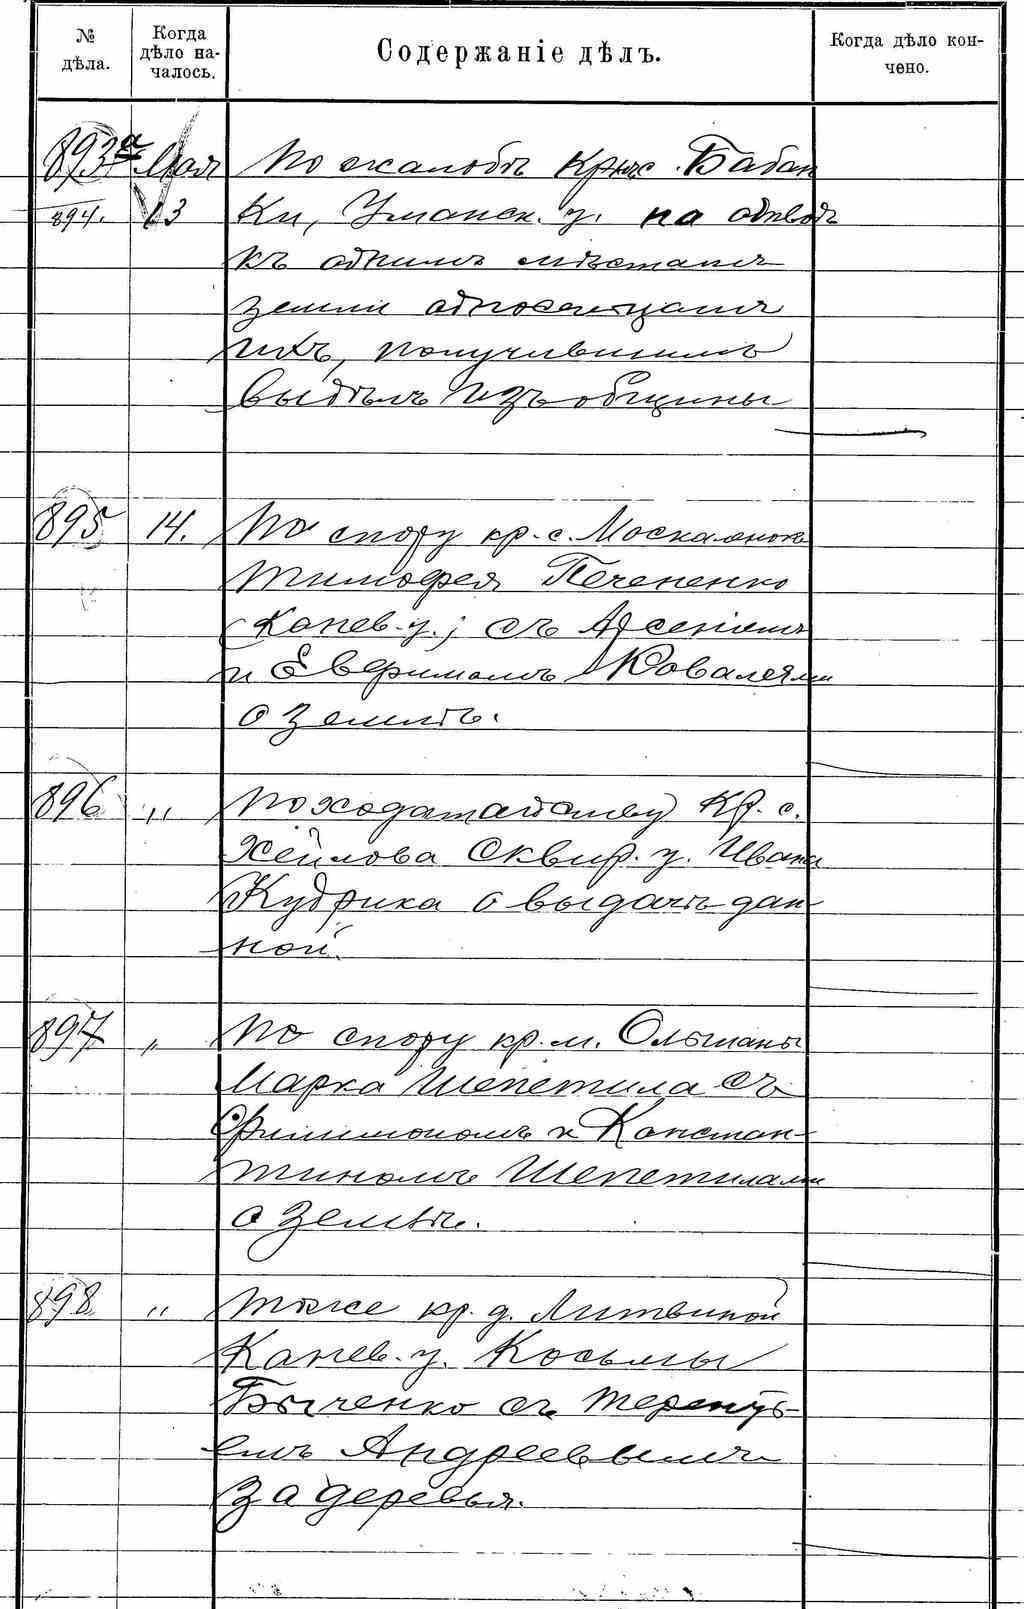 № дѣла.
Когда дѣло на-чалось.
Содержаніе дѣлъ.
Когда дѣло кон-чено.
893а Мая По жалобѣ Кр. с. Бабан
894. 13 ки, Уманск. у. на отводъ
къ однимъ мѣстамъ
земли односельцамъ
ихъ, получившимъ
выдѣлъ изъ общины
895 14. По спору кр. с. Москаленокъ
Тимофея Печененко
(Канев. у.; съ Арсеніемъ
и Евфимомъ Ковалями
о землѣ.
896 " По ходатайству Кр. с.
Хейлова Сквир. у. Ивана
Кудрика о выдачѣ дан
ной.
897 " По спору кр. м. Ольшаны
Марка Шепетила съ
Филимономъ и Констан-
тиномъ Шепетилами
о землѣ.
898 " Тоже кр. д. Литвиной
Канев. у. Косьмы
Быченко съ Терентъ-
емъ Андреевымъ
за деревья.